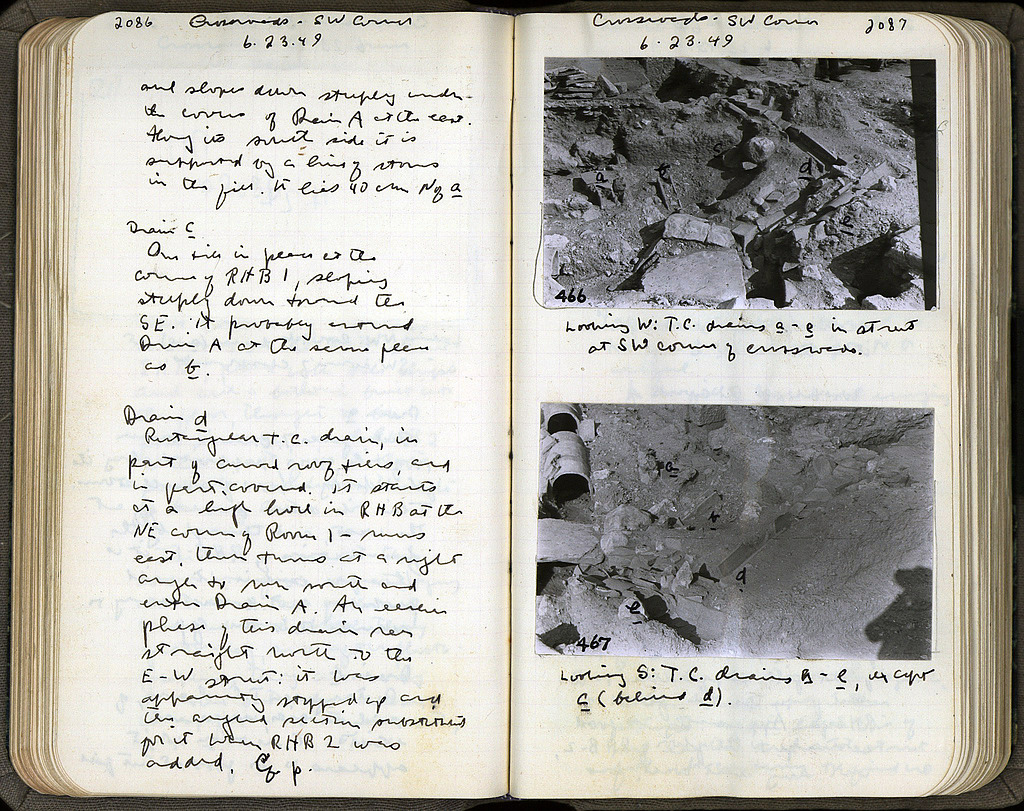 2086 Crossroads - SW Corner
6.23.49
and slopes down steeply under
the cover of Drain A at the east.
Along its south side it is
supported by a line of stones
in the fill. It lies 40 cm N of a
Drain c
One tile in place at the
corner of RHB 1, sloping
steeply down toward the
SE. It probably entered
Drain A at the same place
as b.
Drain d
Rectangular t.c. drain, in
part of curved roof tiles, and
in part covered. It starts
at a high level in RHB at the
NE corner of Room 1 - runs
east, then turns at a right
angle to run south and
enter Drain A. An earlier
phase of this drain ran
straight north to the
E-W street: it was
apparently stopped up and
the angled section substituted
for it when RHB 2 was
added. Cf p
Crossroads - SW Corner 2087
6.23.49
a
c
d
e
466
Looking W: T.C. drains a - e in street
at SW corner of crossroads.
a
b
d
e
467
Looking S: T.C. drains a - e, except
c (behind d).